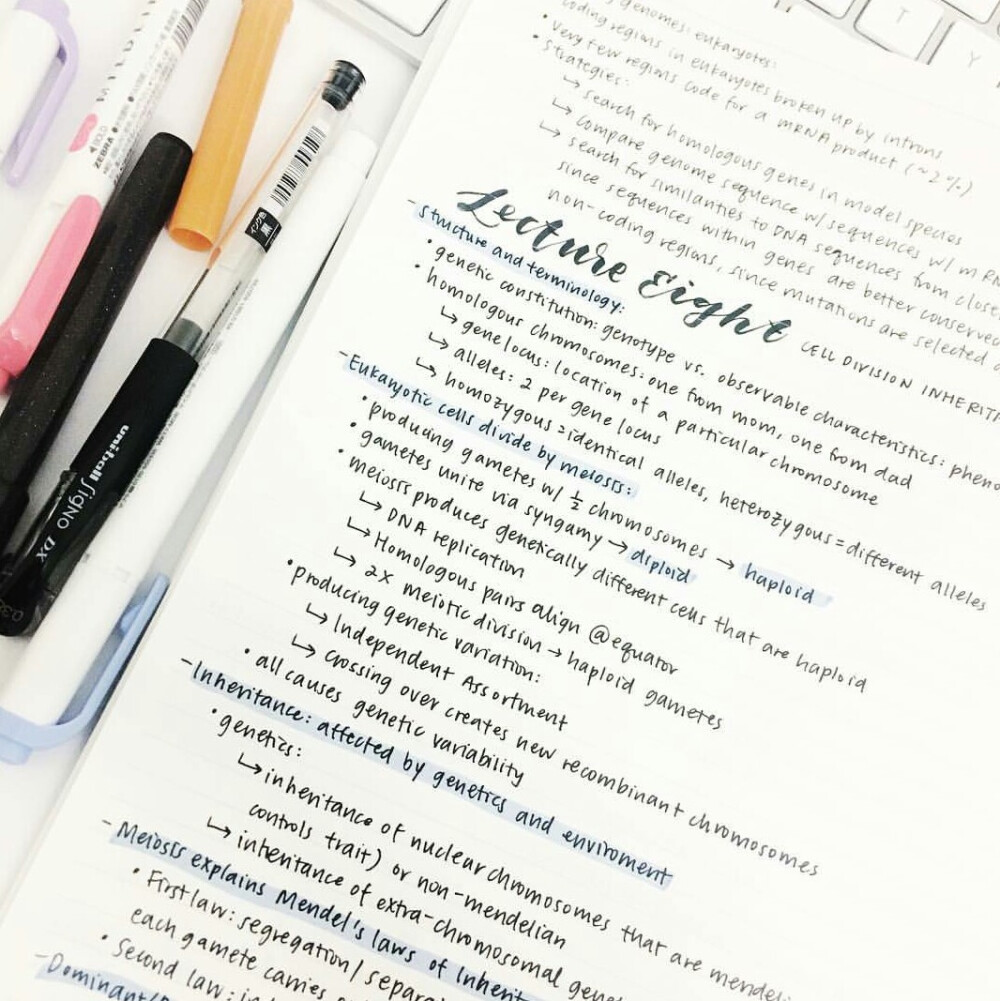 genomes: eukaryotes:
coding regions in eukaryotes broken up by introns
• Very few regions code for a mRNA product (~2%)
• Strategies:
↳ search for homologous genes in model species
↳ compare genome sequence w/ sequences w/ mRN
↳ search for similarities to DNA sequences from close
since sequences within genes are better conserved
non-coding regions, since mutations are selected
Lecture Eight
CELL DIVISION INHERIT
- Structure and terminology:
• genetic constitution: genotype vs. observable characteristics: pheno
• homologous chromosomes: one from mom, one from dad
↳ gene locus: location of a particular chromosome
↳ alleles: 2 per gene locus
↳ homozygous = identical alleles, heterozygous = different alleles
- Eukaryotic cells divide by meiosis:
• producing gametes w/ ½ chromosomes → haploid
• gametes unite via syngamy → diploid
• meiosis produces genetically different cells that are haploid
↳ DNA replication
↳ Homologous pairs align @equator
↳ 2x meiotic division → haploid gametes
• producing genetic variation:
↳ Independent Assortment
↳ crossing over creates new recombinant chromosomes
• all causes genetic variability
- Inheritance: affected by genetics and enviroment
• genetics:
↳ inheritance of nuclear chromosomes that are mendeli
controls trait) or non-mendelian
↳ inheritance of extra-chromosomal gene
- Meiosis explains Mendel's laws of Inherit
• First law: segregation/separa
each gamete carries
• Second law: in
- Dominant/
MILD
BOLD
ZEBRA
インク色
黒
uniball Signo DX
0.38
T
Y